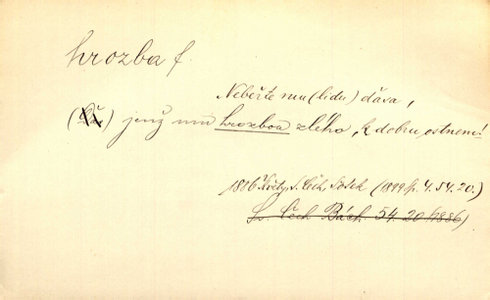 hrozba f.
Neberte mu (lidu) ďasa,
jenž mu hrozbou zlého, k dobru ostnem!
1886 Květy, S. Čech, Sotek (1899 p. 4. 54. 20.)
Sv. Čech Bách. 54. 20 (1886)